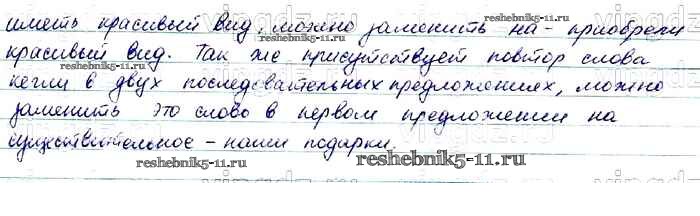 иметь красивый вид, можно заменить на - приобрели
красивый вид. Так же присутствует повтор слова
кегли в двух последовательных предложениях, можно
заменить это слово в первом предложении на
существительное - наши подарки.
reshebnik5-11.ru
reshebnik5-11.ru
reshebnik5-11.ru
reshebnik5-11.ru